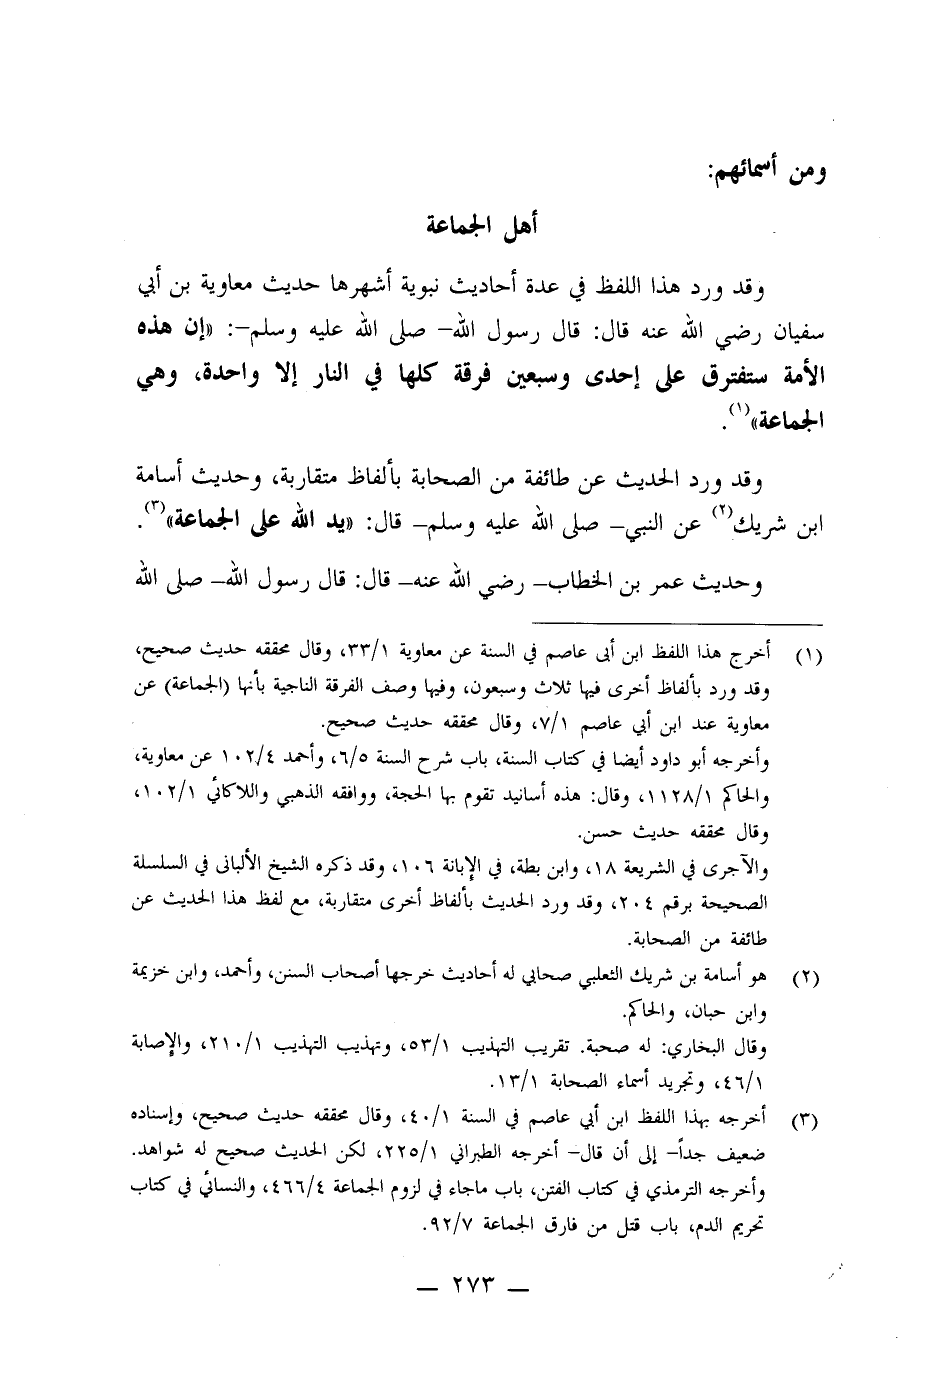 ومن أسمائهم:
أهل الجماعة
وقد ورد هذا اللفظ في عدة أحاديث نبوية أشهرها حديث معاوية بن أبي
سفيان رضي الله عنه قال: قال رسول الله– صلى الله عليه وسلم–: «إن هذه
الأمة ستفترق على إحدى وسبعين فرقة كلها في النار إلا واحدة، وهي
الجماعة»(١).
وقد ورد الحديث عن طائفة من الصحابة بألفاظ متقاربة، وحديث أسامة
ابن شريك(٢) عن النبي– صلى الله عليه وسلم– قال: «يد الله على الجماعة»(٣).
وحديث عمر بن الخطاب– رضي الله عنه– قال: قال رسول الله– صلى الله
(١) أخرج هذا اللفظ ابن أبى عاصم في السنة عن معاوية ٣٣/١، وقال محققه حديث صحيح،
وقد ورد بألفاظ أخرى فيها ثلاث وسبعون، وفيها وصف الفرقة الناجية بأنها (الجماعة) عن
معاوية عند ابن أبي عاصم ٧/١، وقال محققه حديث صحيح.
وأخرجه أبو داود أيضا في كتاب السنة، باب شرح السنة ٦/٥، وأحمد ١٠٢/٤ عن معاوية،
والحاكم ١١٢٨/١، وقال: هذه أسانيد تقوم بها الحجة، ووافقه الذهبي واللاكائي ١٠٢/١،
وقال محققه حديث حسن.
والآجرى في الشريعة ١٨، وابن بطة، في الإبانة ١٠٦، وقد ذكره الشيخ الألبانى في السلسلة
الصحيحة برقم ٢٠٤، وقد ورد الحديث بألفاظ أخرى متقاربة، مع لفظ هذا الحديث عن
طائفة من الصحابة.
(٢) هو أسامة بن شريك الثعلبي صحابي له أحاديث خرجها أصحاب السنن، وأحمد، وابن خزيمة
وابن حبان، والحاكم.
وقال البخاري: له صحبة. تقريب التهذيب ٥٣/١، وتهذيب التهذيب ٢١٠/١، والإصابة
٤٦/١، وتجريد أسماء الصحابة ١٣/١.
(٣) أخرجه بهذا اللفظ ابن أبي عاصم في السنة ٤٠/١، وقال محققه حديث صحيح، وإسناده
ضعيف جداً– إلى أن قال– أخرجه الطبراني ٢٢٥/١، لكن الحديث صحيح له شواهد.
وأخرجه الترمذي في كتاب الفتن، باب ماجاء في لزوم الجماعة ٤٦٦/٤، والنسائي في كتاب
تحريم الدم، باب قتل من فارق الجماعة ٩٢/٧.
— ٢٧٣ —